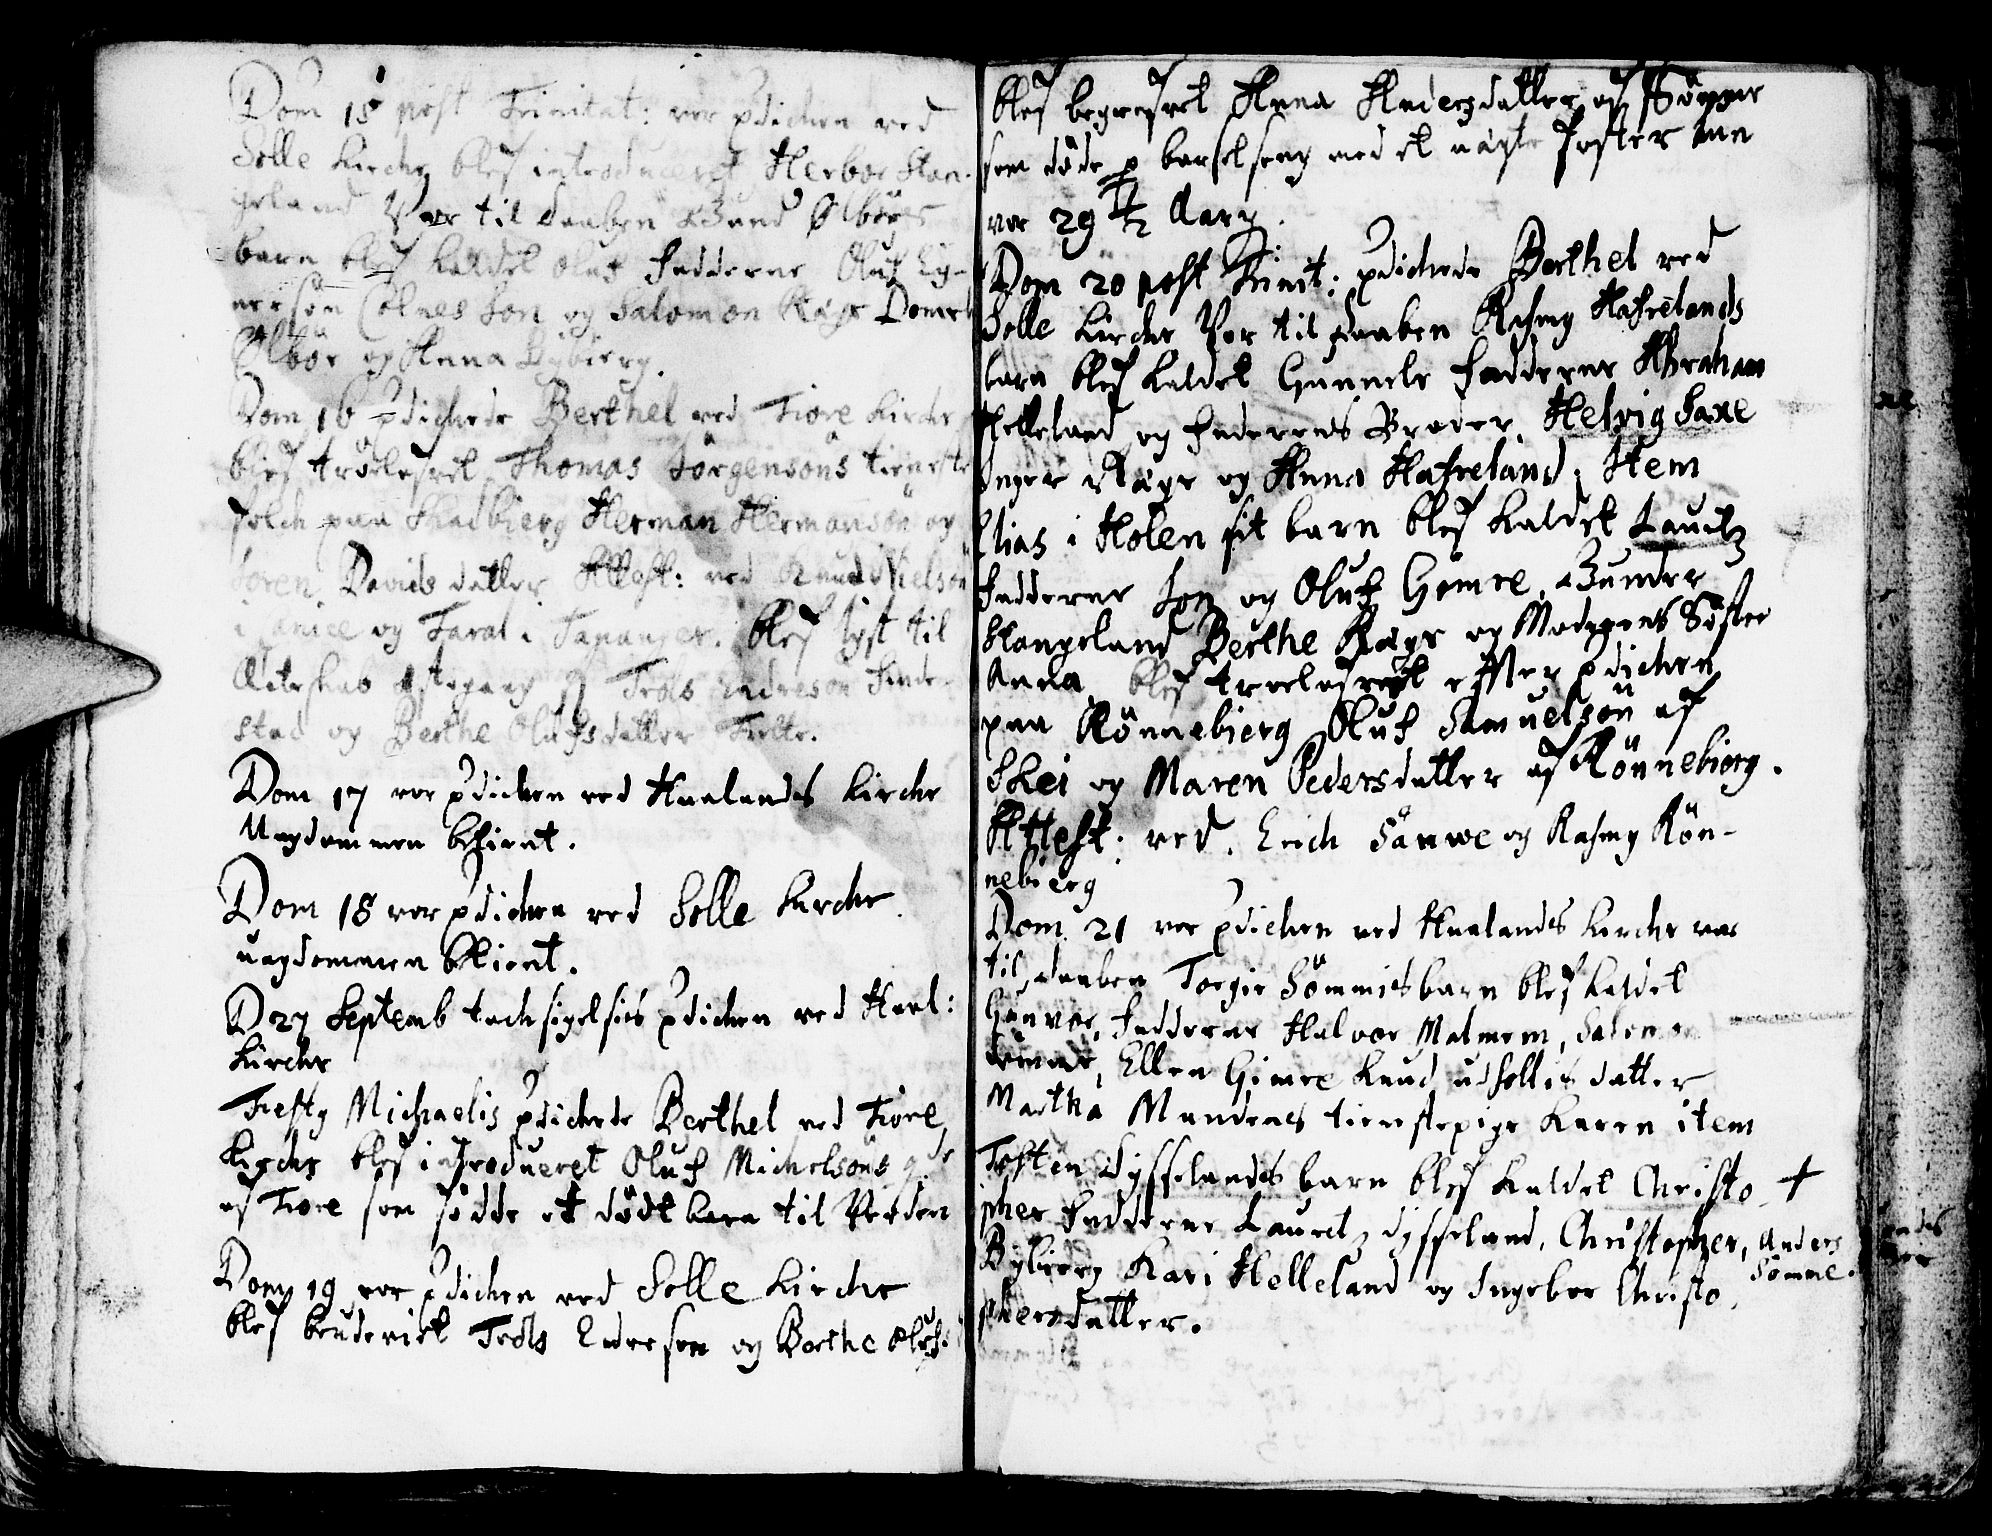 Dom 15 post Trinitat: var pdichen ved
Solle Kirche blef introduceret Herbor Stan-
geland Var til Daaben Gund Ølbörs
barn blef kaldet Oluf Fadderne Oluf
Colnes Jon og Salomon Ræge
Ølbör og Anna Dybierg.
Dom 16 pdichede Berthel ved Tiore Kirche
blef trolofvet Thomas Jörgensöns tieneste
folch paa Skadbierg Herman Hermansön og
Soren Davids datter Attest: ved Knud Nielsön
i og Taral i Tananger. blef lyst til
Ecteskab 1ste gang Trols Endresön Finde-
stad og Berthe Olufsdatter
Dom 17 var pdichen ved Haalands Kirche
Ungdommen
Dom 18 var pdichen ved Solle Kirche.
ungdommen
D 27 Septemb tachsigelsis pdichen ved Haal:
Kirche
Festo Michaelis pdichede Berthel ved Tiore
Kirche blef introduceret Oluf Michelsöns
af Tiore som fødde et dödt barn til Verden
Dom 19 var pdichen ved Solle Kirche
blef bruderiet Trols Endresön og Berthe Olufs-
blef begrafvet Anna Andersdatter af Sömme
som döde p barselseng med et uægte foster
var 29 1/2 Aar
Dom 20 post Trinit: pdichede Berthel ved
Solle Kirche Var til Daaben Rasmus Hafrelands
barn blef kaldet Gunnele Fadderne Abraham
Helleland og Faderens Broder, Helvig Saxe
Inger Ræge og Anna Hafreland. Item
Elias i Holen sit barn blef kaldet Lauritz
Fadderne Jon og Oluf Gimre, Gunder
Stangeland Berthe Ræge og Moderens Söster
Anna. blef troelofvet effter pdichen
paa Rönnebierg Oluf Samuelsön af
Skei og Maren Pedersdatter af Rönneberg.
Attest: ved. Erich Sanwe og Rasmus Rön-
nebierg
Dom. 21 var pdichen ved Haalands Kirche var
til Daaben Torgir Sömmis barn blef kaldet
Gunvor, Fadderne Halvor Malmem, Salomon
Ellen Gimre Knud udsollis datter
Martha Mundenes tienstepige Karen item
Tosten Dysselands barn blef kaldet Christo- †
pher Fadderne Lauretz Dysseland, Christopher, Anders
Sömme.
Bybierg Kari Helleland og Ingebor Christo-
phersdatter.